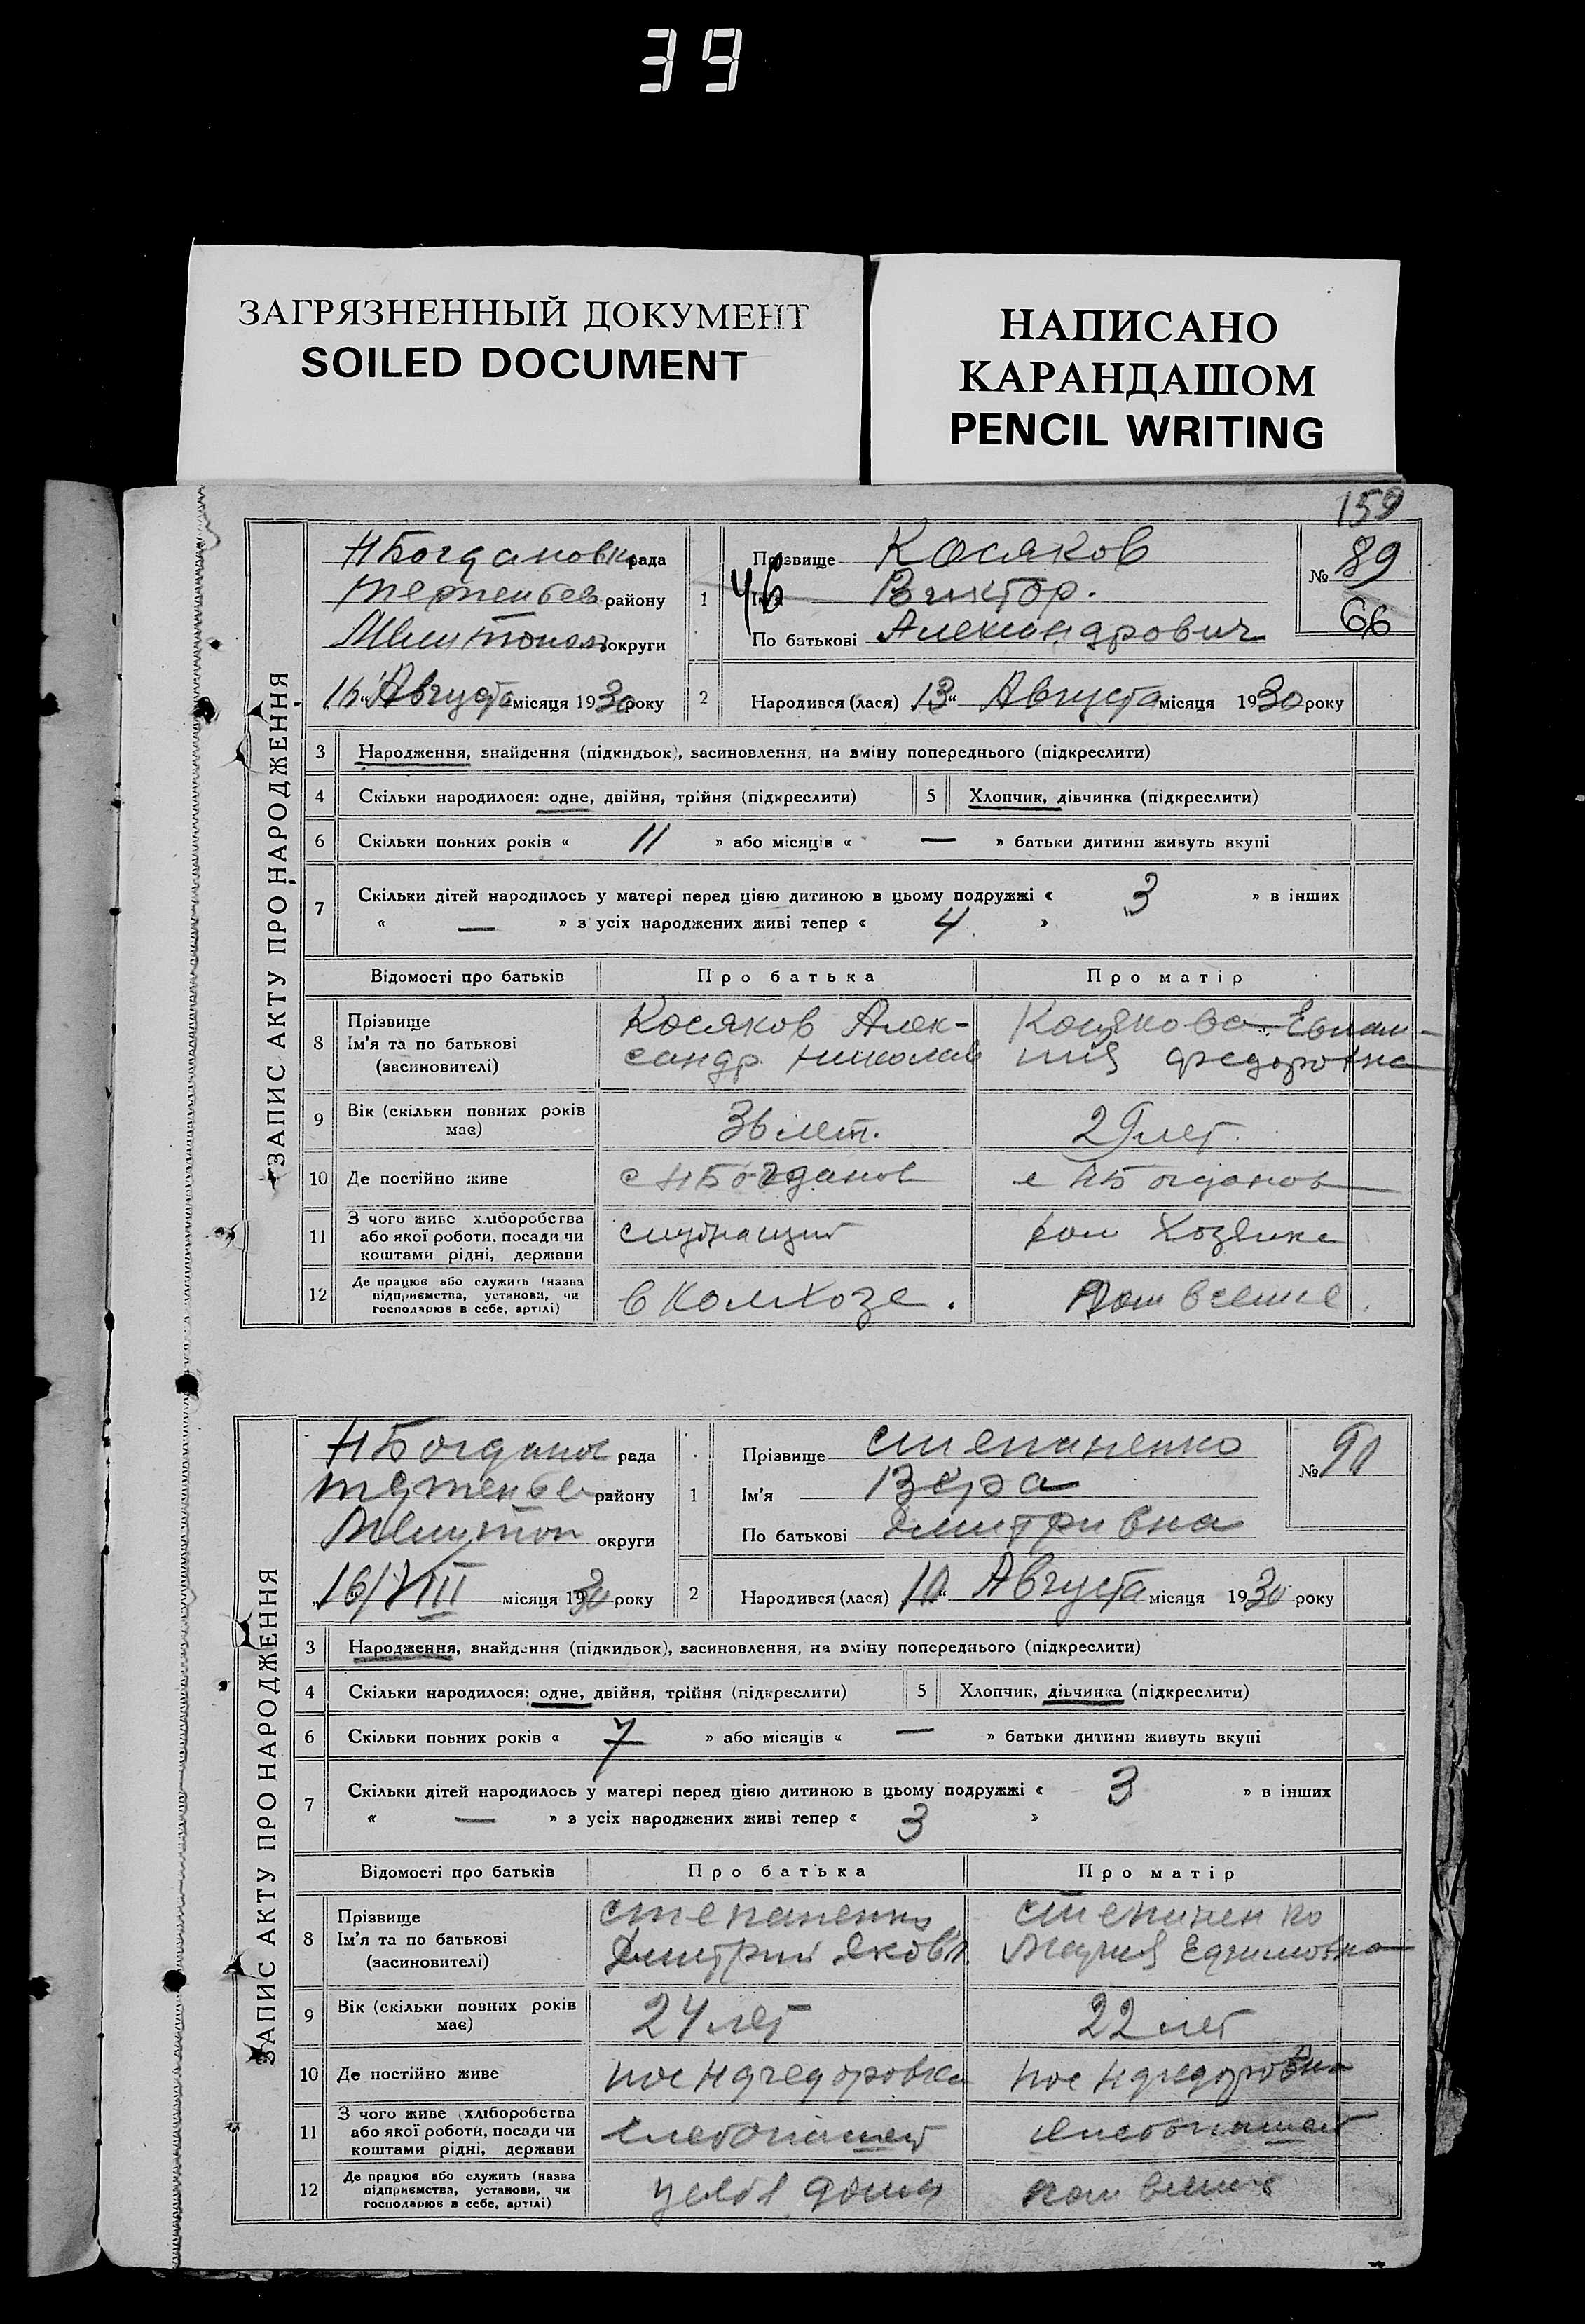 39
ЗАГРЯЗНЕННЫЙ ДОКУМЕНТ
SOILED DOCUMENT
НАПИСАНО
КАРАНДАШОМ
PENCIL WRITING
159
ЗАПИС АКТУ ПРО НАРОДЖЕННЯ
НБогдановка рада
району
округи
16 „ Августа місяця 1930 року
1 Прізвище Косяков
46
Ім'я Виктор.
По батькові Александрович
№ 89
66
2 Народився (лася) 13 “ Августа місяця 1930 року
3 Народження, знайдення (підкидьок), засиновлення, на зміну попереднього (підкреслити)
4 Скільки народилося: одне, двійня, трійня (підкреслити) 5 Хлопчик, дівчинка (підкреслити)
6 Скільки повних років « 11 » або місяців « — » батьки дитини живуть вкупі
7 Скільки дітей народилось у матері перед цією дитиною в цьому подружжі « 3 » в інших
« — » з усіх народжених живі тепер « 4 »
Відомості про батьків Про батька Про матір
8 Прізвище
Ім'я та по батькові
(засиновителі)
Косяков Алек-
сандр Николаев
Косякова
Федоровна
9 Вік (скільки повних років
має)
36 лет.
29 лет.
10 Де постійно живе с НБогданов с НБогданов
11 З чого живе хліборобства
або якої роботи, посади чи
коштами рідні, держави
служащий
дом Хозяйка
12 Де працює або служить (назва
підприємства, установи, чи
господарює в себе, артілі)
в Колхозе.
ЗАПИС АКТУ ПРО НАРОДЖЕННЯ
НБогданов рада
району
Мелитоп округи
16/VIII місяця 1930 року
1 Прізвище Степаненко
Ім'я Вера
По батькові Дмитривна
№ 90
2 Народився (лася) 10 “ Августа місяця 1930 року
3 Народження, знайдення (підкидьок), засиновлення, на зміну попереднього (підкреслити)
4 Скільки народилося: одне, двійня, трійня (підкреслити) 5 Хлопчик, дівчинка (підкреслити)
6 Скільки повних років « 7 » або місяців « — » батьки дитини живуть вкупі
7 Скільки дітей народилось у матері перед цією дитиною в цьому подружжі « 3 » в інших
« — » з усіх народжених живі тепер « 3 »
Відомості про батьків Про батька Про матір
8 Прізвище
Ім'я та по батькові
(засиновителі)
Степаненко
Дмитрий Яковл.
Степаненко
Мария Ефимовна
9 Вік (скільки повних років
має)
24 лет
22 лет
10 Де постійно живе пос Нфедоровка пос Нфедоровка
11 З чого живе (хліборобства
або якої роботи, посади чи
коштами рідні, держави
хлебопашест
хлебопашест
12 Де працює або служить (назва
підприємства, установи, чи
господарює в себе, артілі)
у себя дома